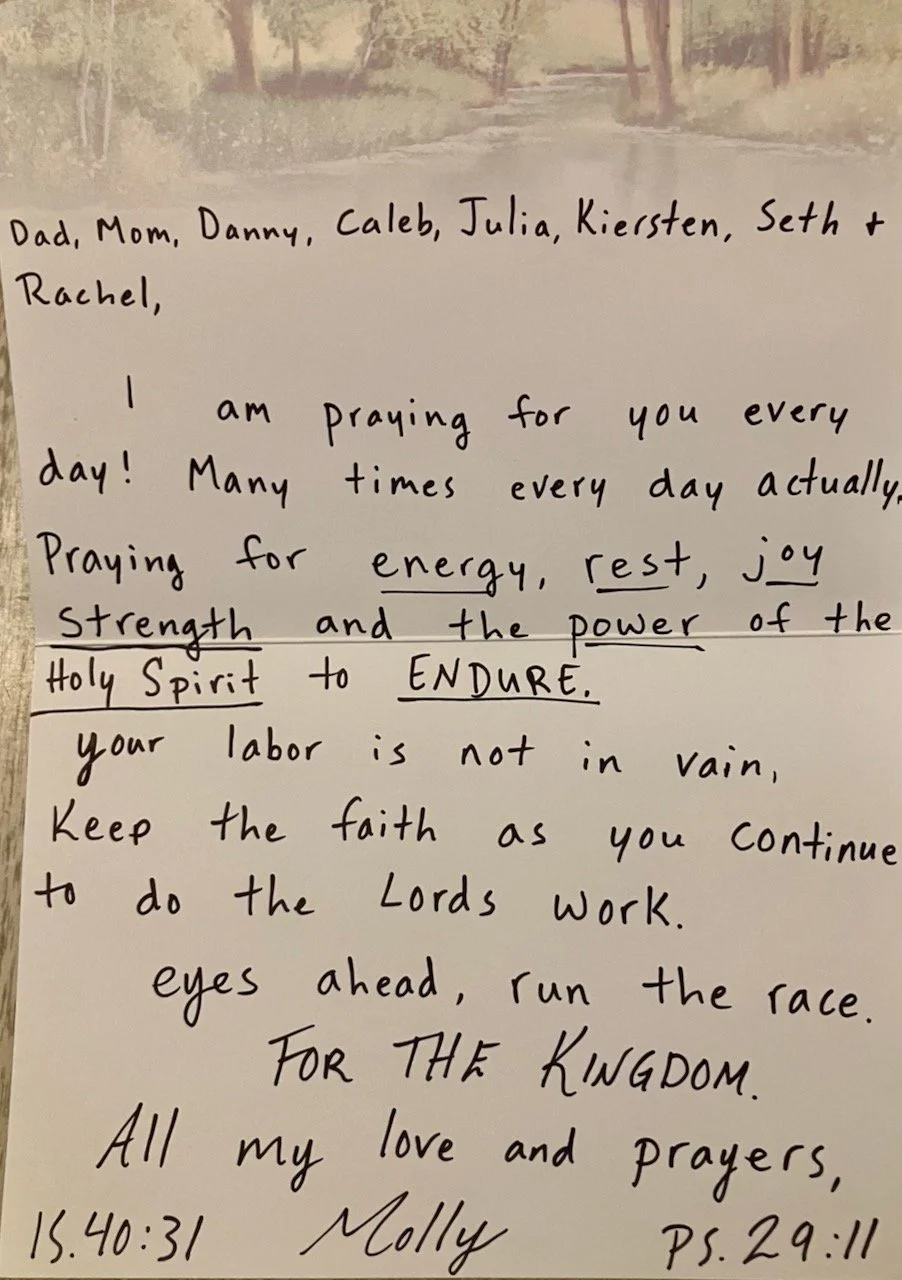 Dad, Mom, Danny, Caleb, Julia, Kiersten, Seth +
Rachel,
I am praying for you every
day! Many times every day actually.
Praying for energy, rest, joy
Strength and the power of the
Holy Spirit to ENDURE.
your labor is not in vain,
Keep the faith as you continue
to do the Lords work.
eyes ahead, run the race.
FOR THE KINGDOM.
All my love and prayers,
IS.40:31 Molly PS.29:11